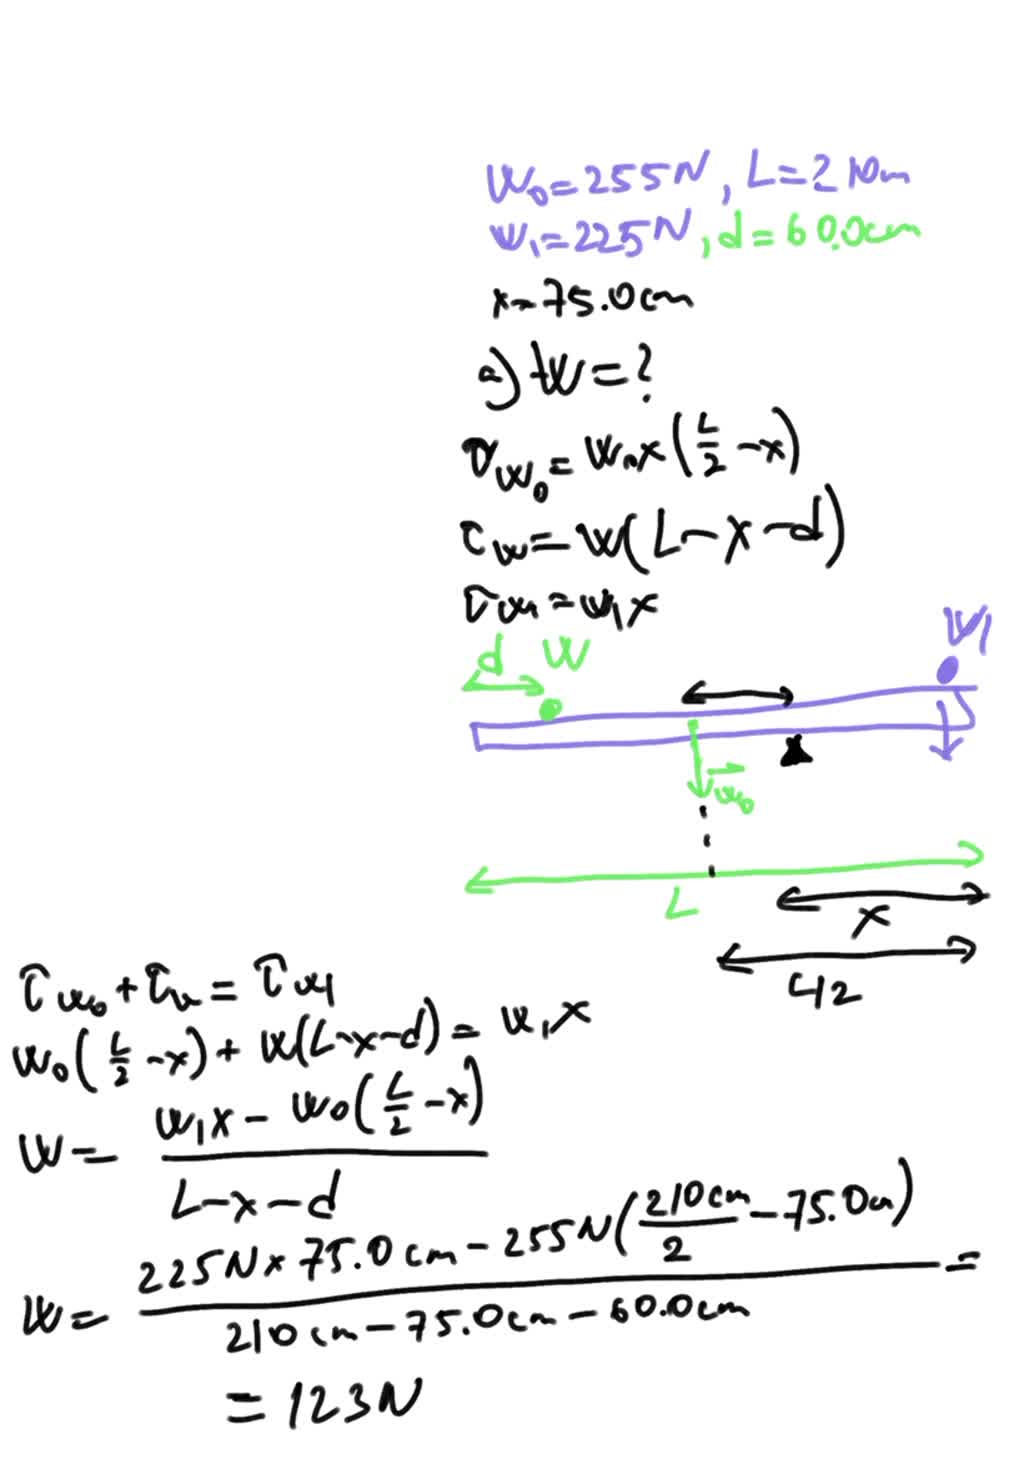 W₀=255N, L=210cm
W₁=225N, d=60.0cm
x=75.0cm
a) W=?
τw₀=W₀x(L/2-x)
τw=W(L-x-d)
τw₁=w₁x
d W W₁
w₀
L
x
L/2
τw₀+τw=τw₁
W₀(L/2-x)+W(L-x-d)=W₁x
W= W₁x-W₀(L/2-x)
L-x-d
W= 225N×75.0cm-255N(210cm/2-75.0cm) =
210cm-75.0cm-60.0cm
=123N